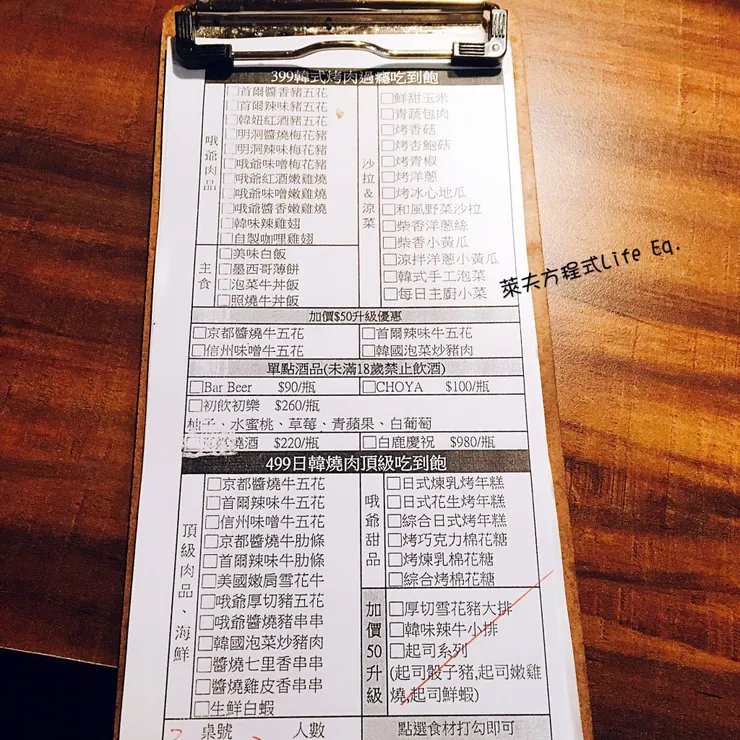 399韓式烤肉過癮吃到飽
哦爺肉品
□首爾醬香豬五花
□首爾辣味豬五花
□韓妞紅酒豬五花
□明洞醬燒梅花豬
□明洞辣味梅花豬
□哦爺味噌梅花豬
□哦爺紅酒嫩雞燒
□哦爺味噌嫩雞燒
□哦爺醬香嫩雞燒
□韓味辣雞翅
□自製咖哩雞翅
主食
□美味白飯
□墨西哥薄餅
□泡菜牛丼飯
□照燒牛丼飯
沙拉&涼菜
□鮮甜玉米
□青蔬包肉
□烤香菇
□烤杏鮑菇
□烤青椒
□烤洋蔥
□烤冰心地瓜
□和風野菜沙拉
□柴香洋蔥絲
□柴香小黃瓜
□涼拌洋蔥小黃瓜
□韓式手工泡菜
□每日主廚小菜
萊夫方程式Life Eq.
加價$50升級優惠
□京都醬燒牛五花 □首爾辣味牛五花
□信州味噌牛五花 □韓國泡菜炒豬肉
單點酒品(未滿18歲禁止飲酒)
□Bar Beer $90/瓶 □CHOYA $100/瓶
□初飲初樂 $260/瓶
柚子、水蜜桃、草莓、青蘋果、白葡萄
燒酒 $220/瓶 □白鹿慶祝 $980/瓶
499日韓燒肉頂級吃到飽
頂級肉品、海鮮
□京都醬燒牛五花
□首爾辣味牛五花
□信州味噌牛五花
□京都醬燒牛肋條
□首爾辣味牛肋條
□美國嫩肩雪花牛
□哦爺厚切豬五花
□哦爺醬燒豬串串
□韓國泡菜炒豬肉
□醬燒七里香串串
□醬燒雞皮香串串
□生鮮白蝦
哦爺甜品
□日式煉乳烤年糕
□日式花生烤年糕
□綜合日式烤年糕
□烤巧克力棉花糖
□烤煉乳棉花糖
□綜合烤棉花糖
加價50升級
□厚切雪花豬大排
□韓味辣牛小排
□起司系列
(起司骰子豬,起司嫩雞
燒,起司鮮蝦)
桌號 人數 點選食材打勾即可